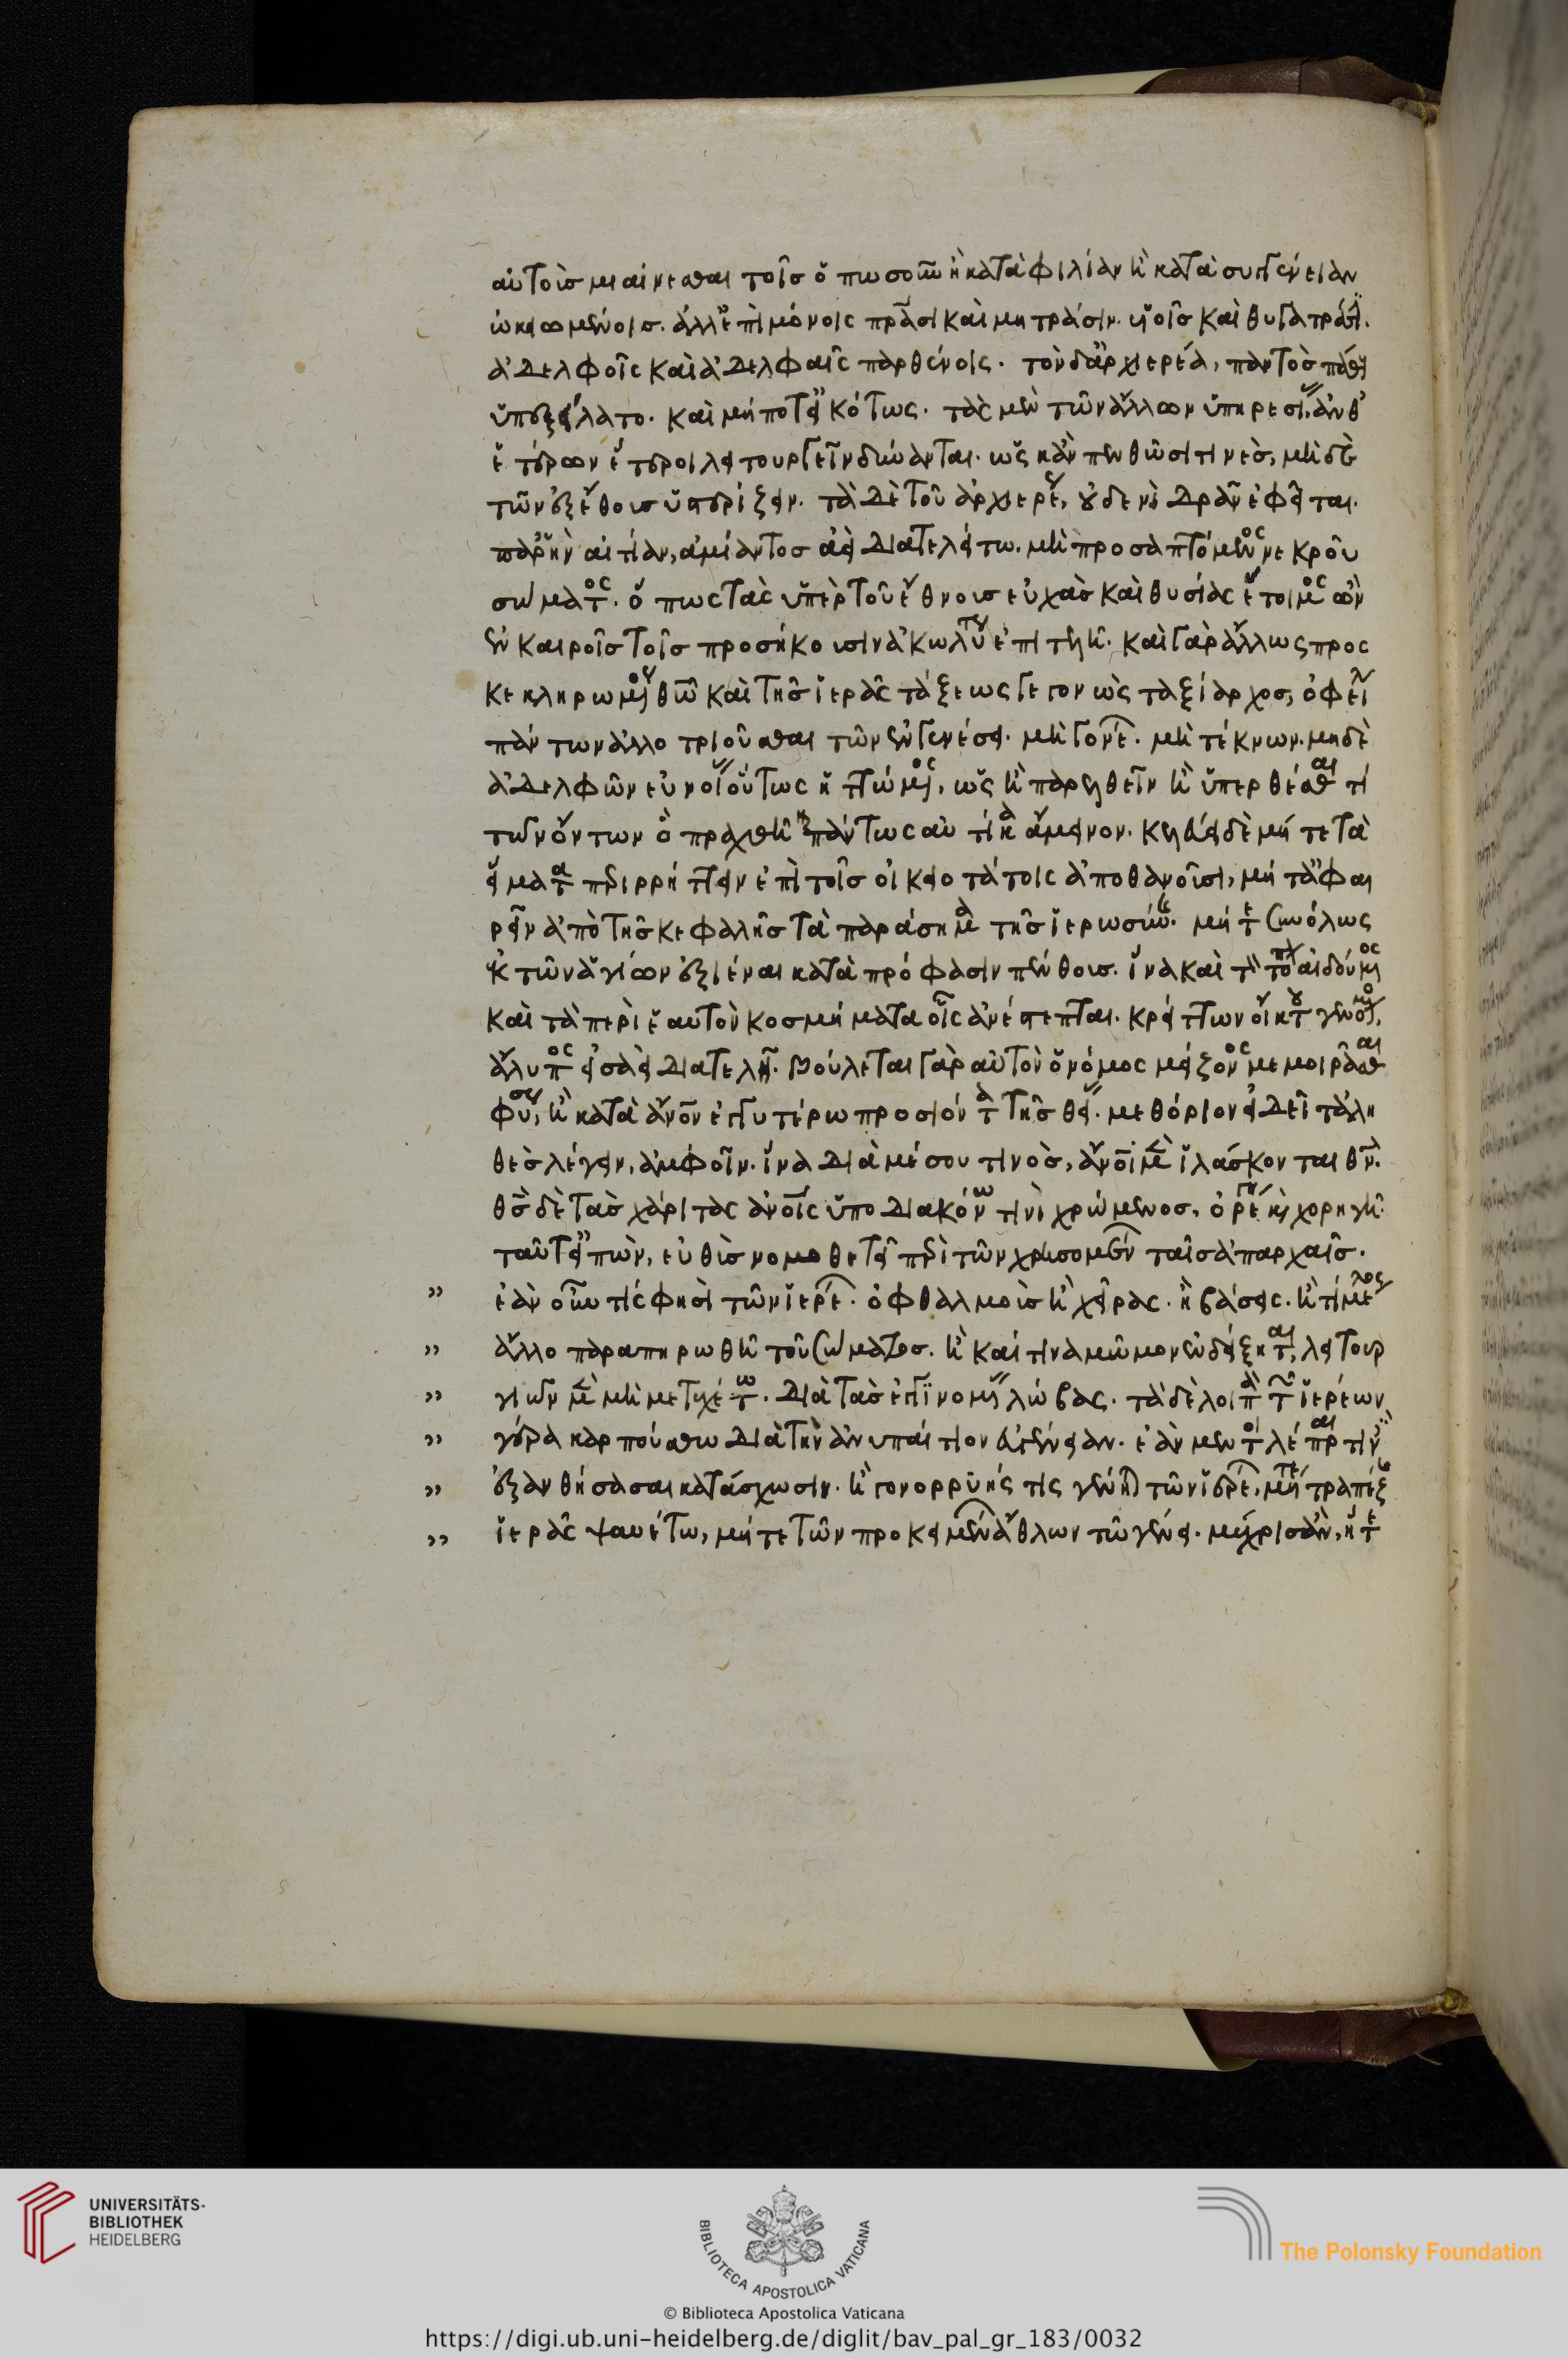 αὐτοὺς μιαίνεσθαι τοῖς ὁπωσοῦν ἢ κατὰ φιλίαν ἢ κατὰ συγγένειαν
ὠκειωμένοις. ἀλλ' ἐπὶ μόνοις πράσι καὶ μητράσιν. υἱοῖς καὶ θυγατράσι.
ἀδελφοῖς καὶ ἀδελφαῖς παρθένοις. τὸν δ' ἀρχιερέα, παντὸς πάθους
ὑπεξείλατο. καὶ μήποτ' εἰκότως. τὰς μὲν τῶν ἄλλων ὑπηρεσίας, ἀνθ'
ἑτέρων ἕτεροι λειτουργεῖν δύνανται. ὡς κἂν πενθῶσι τινὲς, μηδὲ
τῶν ἐξ ἔθους ὑστερίζειν. τὰ δὲ τοῦ ἀρχιερέως, οὐδενὶ δρᾶν ἐφεῖται.
παρ' ἣν αἰτίαν, ἀμίαντος ἀεὶ διατελείτω. μὴ προσαπτόμενος νεκροῦ
σώματος. ὅπως τὰς ὑπὲρ τοῦ ἔθνους εὐχὰς καὶ θυσίας ἕτοιμος ὢν
ἐν καιροῖς τοῖς προσήκουσιν ἀκωλύτως ἐπιτελῇ. καὶ γὰρ ἄλλως προς
κεκληρωμένος θεῶ καὶ τῆς ἱερᾶς τάξεως γεγονὼς ταξίαρχος, ὀφείλει
πάντων ἀλλοτριοῦσθαι τῶν ἐν γενέσει. μὴ γονέων. μὴ τέκνων. μηδὲ
ἀδελφῶν εὐνοίας οὕτως ἡττώμενος, ὡς ἢ παρελθεῖν ἢ ὑπερθέσθαι τί
τῶν ὄντων ὃ πραχθῆναι πάντως αὐτίκα ἄμεινον. κελεύει δὲ μήτε τὰ
εἵματα περιρρήττειν ἐπὶ τοῖς οἰκειοτάτοις ἀποθανοῦσι, μήτ' ἀφαι
ρεῖν ἀπὸ τῆς κεφαλῆς τὰ παράσημα τῆς ἱερωσύνης. μήτε συνόλως
ἐκ τῶν ἁγίων ἐξιέναι κατὰ πρόφασιν πένθους. ἵνα καὶ τὸν τόπον αἰδούμενος
καὶ τὰ περὶ ἑαυτὸν κοσμήματα οἷς ἀνέστεπται. κρείττων οἴκτου γενόμενος,
ἄλυπος εἰσάει διατελῇ. βούλεται γὰρ αὐτὸν ὁ νόμος μείζονος μεμοιρᾶσθαι
φύσεως, ἢ κατὰ ἄνον ἐγγυτέρω προσιόντα τῆς θείας. μεθόριον εἰ δεῖ τἀλη
θὲς λέγειν, ἀμφοῖν. ἵνα διὰ μέσου τινὸς, ἄνοι μὲν ἱλάσκονται θν.
θς δὲ τὰς χάριτας ἀνοις ὑποδιακόνω τινὶ χρώμενος, ὀρέγη καὶ χορηγῆ.
ταῦτ' εἰπὼν, εὐθὺς νομοθετεῖ περὶ τῶν χρησομένων ταῖς ἀπαρχαῖς.
ἐὰν οὖν τίς φησὶ τῶν ἱερέων. ὀφθαλμοὺς ἢ χεῖρας. ἢ βάσεις. ἢ τί μέλος
ἄλλο παραπηρωθῇ τοῦ σώματος. ἢ καί τινα μῶμον ἐνδέξηται, λειτουρ
γιῶν μὲν μὴ μετεχέτω. διὰ τὰς ἐπιγινομένας λώβας. τὰ δὲ λοιπὰ τῶν ἱερέων
γέρα καρπούσθω διὰ τὴν ἀνυπαίτιον εὐγένειαν. ἐὰν μέντοι λέπραι τινὶ
ἐξανθήσασαι κατάσχωσιν. ἢ γονορρυής τις γένηται τῶν ἱερέων, μήτε τραπέζης
ἱερᾶς ψαυέτω, μήτε τῶν προκειμένων ἄθλων τῶ γένει. μέχρις ἂν, ἥτε
UNIVERSITÄTS-
BIBLIOTHEK
HEIDELBERG
BIBLIOTECA APOSTOLICA VATICANA
The Polonsky Foundation
© Biblioteca Apostolica Vaticana
https://digi.ub.uni-heidelberg.de/diglit/bav_pal_gr_183/0032